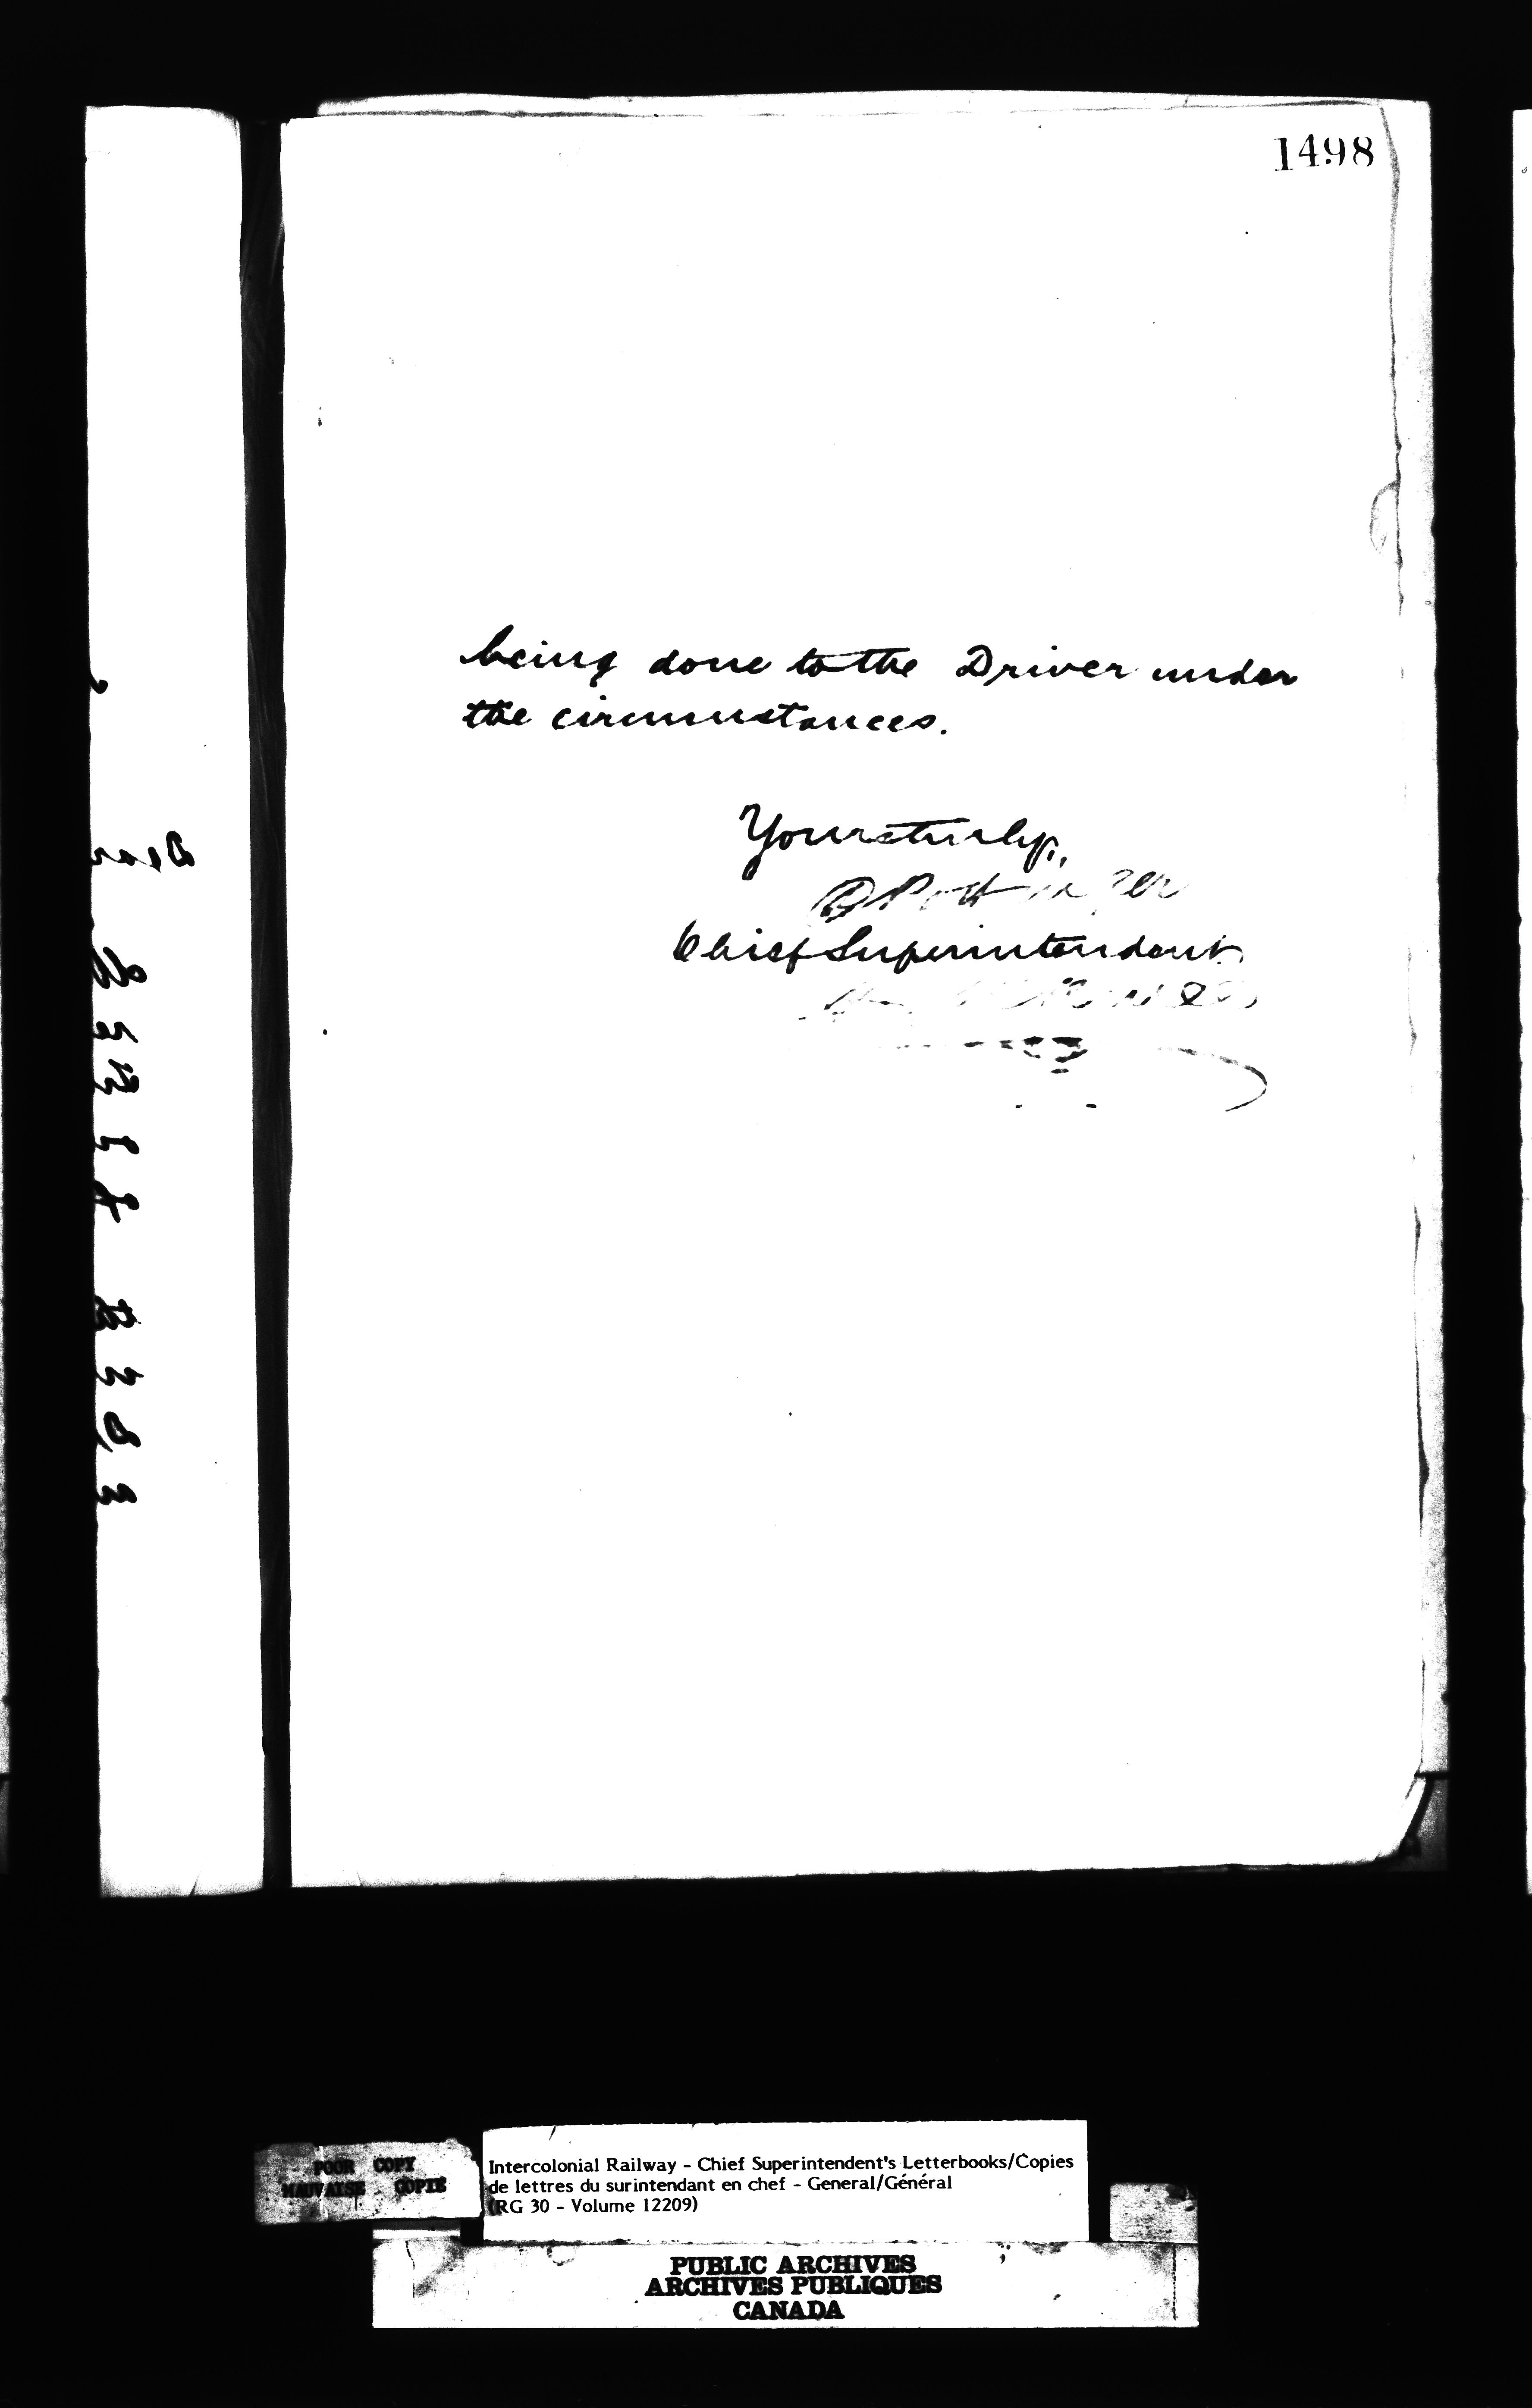 1498
being done to the Driver under
the circumstances.
Yours truly,
D Pottinger
Chief Superintendent
POOR COPY
MAUVAISE COPIE
Intercolonial Railway - Chief Superintendent's Letterbooks/Copies
de lettres du surintendant en chef - General/Général
(RG 30 - Volume 12209)
PUBLIC ARCHIVES
ARCHIVES PUBLIQUES
CANADA